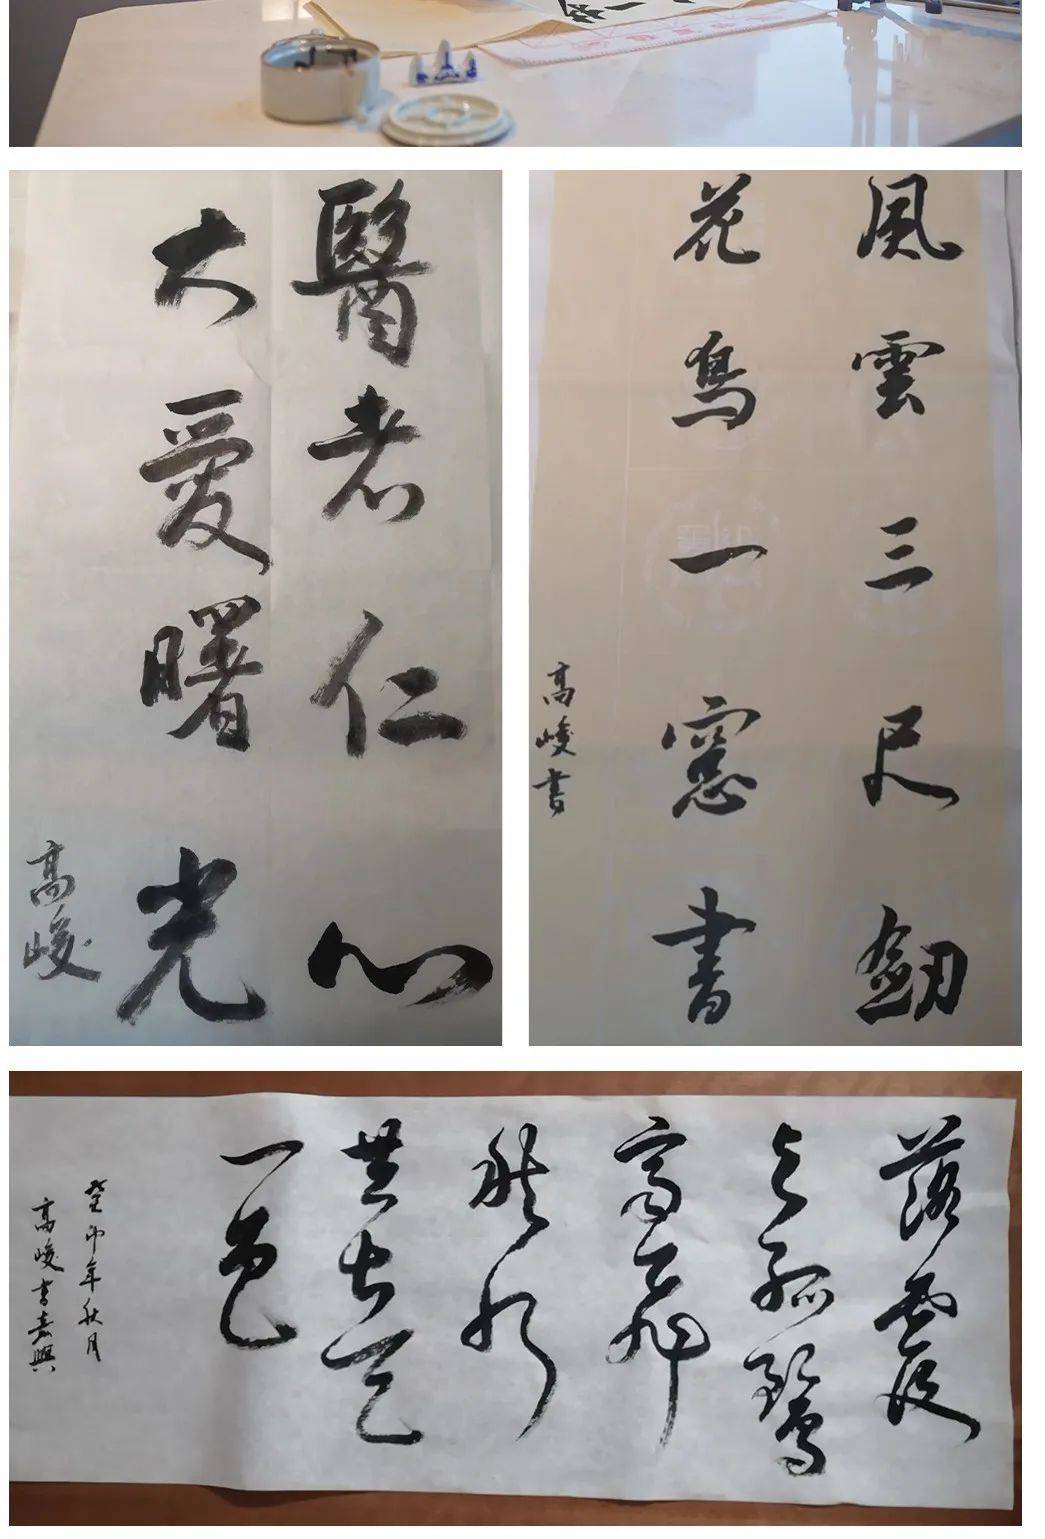 醫老仁心
大愛曙光
高峻
風雲三尺劒
花鳥一窻書
高峻書
落霞
与孤鶩
齊飛
秋水
共長天
一色
癸卯年秋月
高峻書嘉興